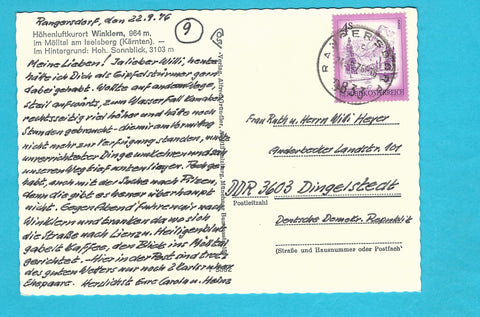 Rangersdorf, den 22.9.76
Höhenluftkurort Winklern, 964 m,
im Mölltal am Iselsberg (Kärnten). —
Im Hintergrund: Hoh. Sonnblick, 3103 m
Meine Lieben! Ja lieber Willi, heute
hätte ich Dich als Gipfelstürmer gern
dabei gehabt. Wollte auf anderem Wege
steil aufwärts, zum Wasserfall
rechtzeitig viel höher und hätte noch
Stunden gebraucht - die mir am Vormittag
nicht mehr zur Verfügung standen, mußte
unverrichteter Dinge umkehren und
unseren Weg bief. Pech ge-
habt, auch mit der Suche nach Pilzen,
denn die gibt es hier überhaupt
nicht. Gegen Abend fuhren wir nach
Winklern und tranken da wo sich
die Straße nach Lienz u. Heiligenblut
gabelt Kaffee, den Blick ins Mölltal
gerichtet. — Hier in der Post sind trotz
des guten Wetters nur noch 2 Karlsruher
Ehepaare. Herzlichst Eure Carola u. Heinz
9
S
REPUBLIK ÖSTERREICH
RANGERSDORF
9833
Frau Ruth u. Herrn Willi Heyer
Anderbecker Landstr. 101
DDR 3603 Dingelstedt
Postleitzahl
Deutsche Demokr. Republik
(Straße und Hausnummer oder Postfach)